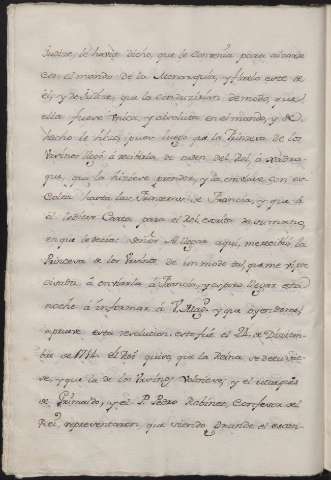 Judice, le havia dicho, que le convenia para alcanza-
r el mando de la Monarquia, y fiarla este de
el, y de Judice, que la conducirian de modo, que
ella fuese unica, y absoluta en el mando, y de
hecho le hizo, pues luego que la Princesa de los
Ursinos llegó á recibirla de orden del Rei, á Xadra-
que, que la hiziese prender, y la enviase con es-
colta hasta las Fronteras de Francia, y que á
el le diese Carta para el Rei, escrita de su mano,
en que le decia: Señor Al llegar aqui, me recibió la
Princesa de los Ursinos de un modo tal, que me
á enviarla á Francia, y espero llegar esta
noche á informar á V. Mag. y que oyendome,
apruebe esta resolucion. este fue el 24. de Diciem-
bre de 1714. el Rei quiso que la Reina se detuvie-
se, y que la de los Ursinos volviese, y el
de Grimaldo, y el P. Pedro Robinet, Confesor del
Rei, representaron, que siendo grande el escan-